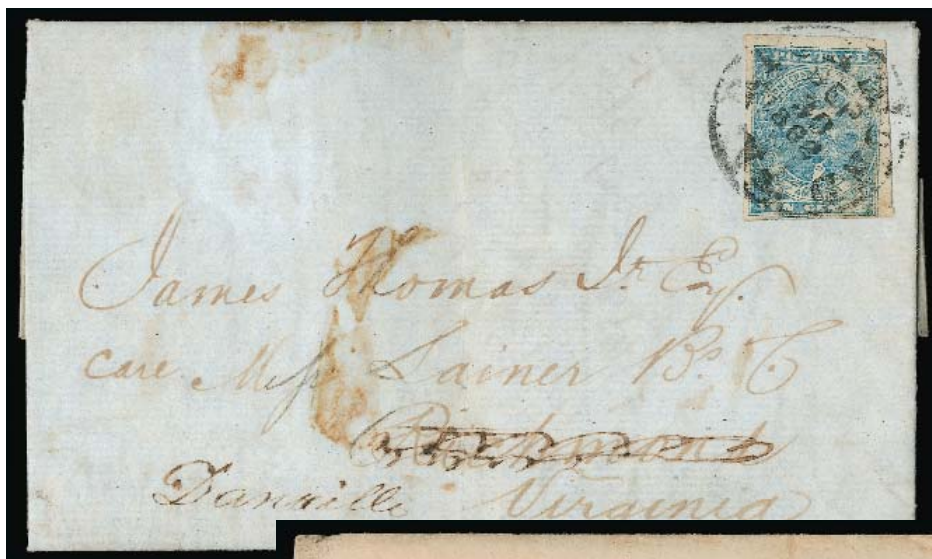 James Thomas Jr. Esq.
care Messr Lainer Bs. C
Richmond
Danville Virginia